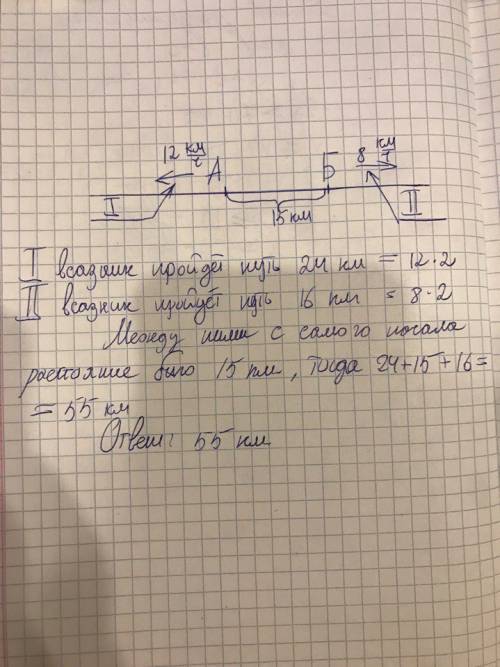 12 км/ч А Б 8 км/ч
I 15 км II
I всадник пройдёт путь 24 км = 12·2
II всадник пройдёт путь 16 км = 8·2
Между ними с самого начала
расстояние было 15 км, тогда 24+15+16=
= 55 км
Ответ: 55 км